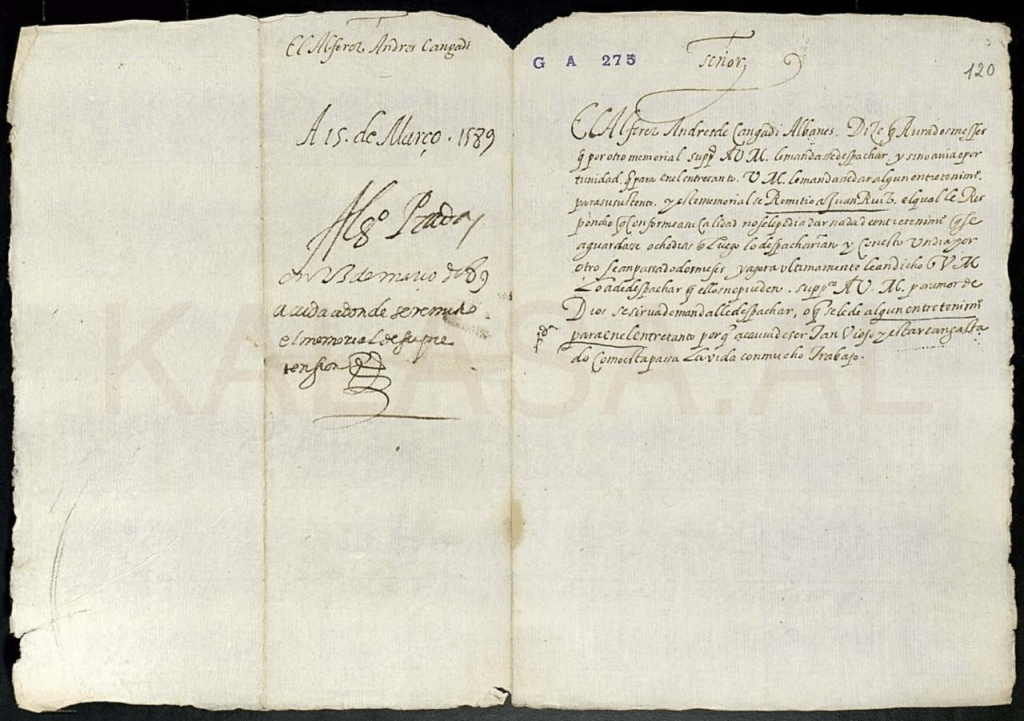 El Alferez Andres Cangadi
A 15. de Março. 1589
Al sº Prada
en 13 de março de 89
acuda a donde se remitio
el memorial de su pre
tension
G A 275
Señor
120
El Alferez Andres de Cangadi Albanes. Dize q Aura dos messes
q por otro memorial suppº A V. M. le mandasse despachar, y si no auia opor
tunidad, q para en el entretanto. V. M. le mandasse dar algun entretenimº.
para su sustento. y este memorial se Remitio a Juan Ruiz. el qual le Res
pondio q conforme a su Calidad no se le podia dar nada de entretenimº q se
aguardase ocho dias q luego lo despacharian y con esto un dia por
otro se an passado dos meses, y agora ultimamente le an dicho q V M
Lo a de despachar q ellos no pueden. suppᶜᵃ A V. M. por amor de
Dios se sirva de mandalle despachar, o q se le de algun entretenimº
para en el entretanto porq a causa de ser Tan Viejo y estar tan gasta
do Como esta passa La vida con mucho Trabajo.
KALASA.AL